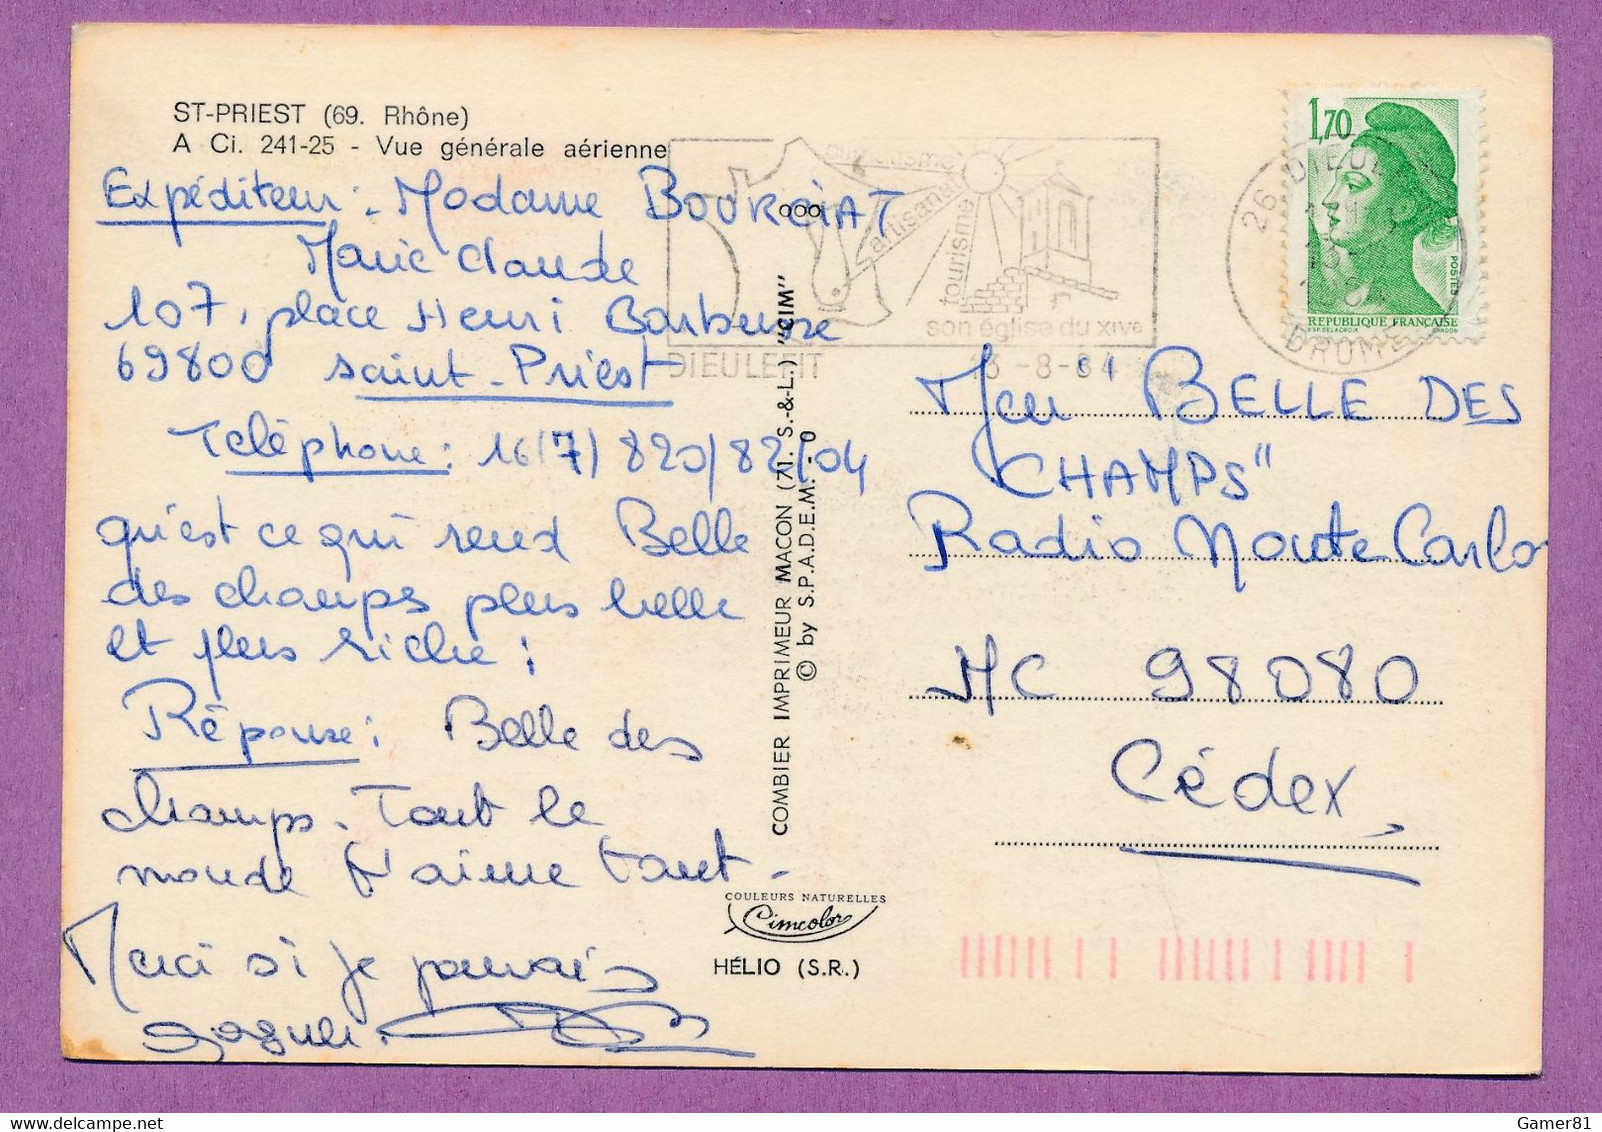 ST-PRIEST (69. Rhône)
A Ci. 241-25 - Vue générale aérienne
Expéditeur : Madame BOURGIAT
Marie Claude
107, place Henri Barbusse
69800 Saint-Priest
Téléphone : 16(7) 820/82/04
qu'est ce qui rend Belle
des champs plus belle
et plus riche :
Réponse : Belle des
champs. Tout le
monde t'aime tant -
Merci si je pouvais
gagner.
COMBIER IMPRIMEUR MACON (71. S.-&-L.) "CIM"
© by S.P.A.D.E.M. - 0
COULEURS NATURELLES
Cimcolor
HÉLIO (S.R.)
artisanat
tourisme
son église du XIVe
DIEULEFIT
13-8-84
26 DIEULEFIT
DROME
1,70
POSTES
REPUBLIQUE FRANÇAISE
D'AP. DELACROIX GANDON
Jeu "BELLE DES
CHAMPS"
Radio Monte Carlo
MC 98080
Cédex
Gamer81